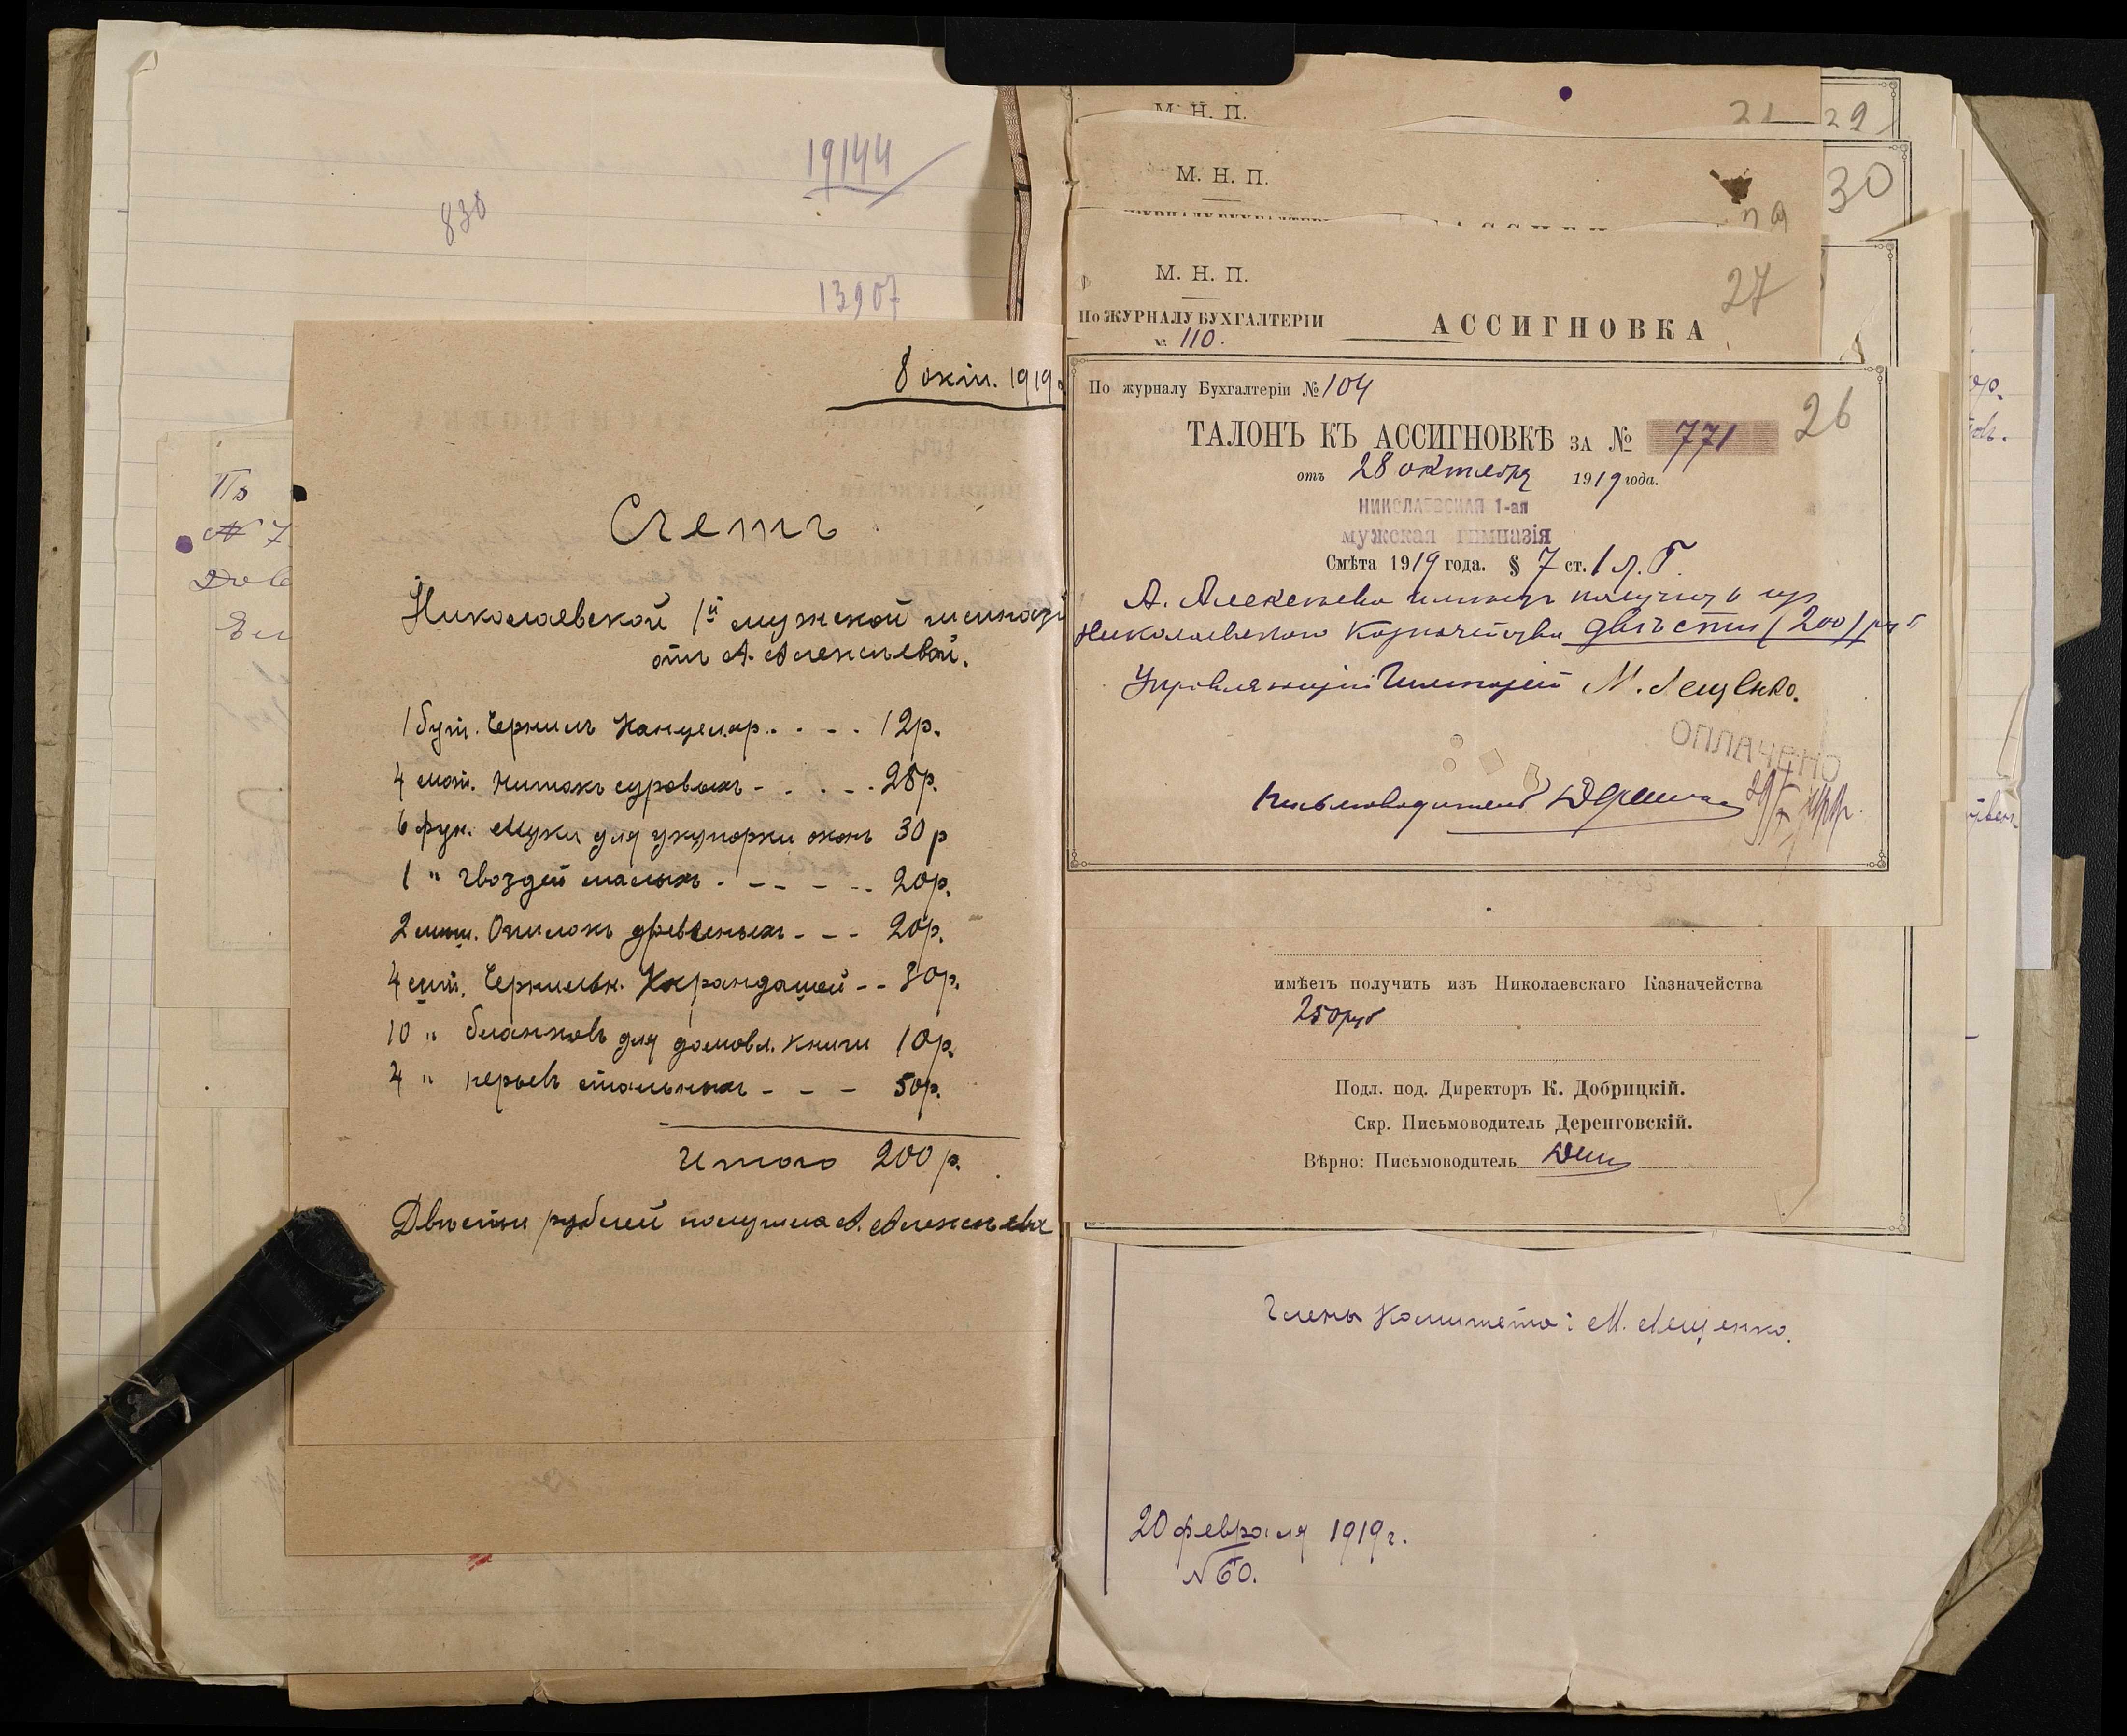 19144
830
13907
Пъ
№ 7
8 окт. 1919
Счетъ
Николаевской 1й мужской гимназі
отъ А. Алексѣевой.
1 бут. Чернилъ Канцеляр. . . - . 12р.
4 мот. Нитокъ суровыхъ - . . - . 28р.
6 фун. Муки для укупорки оконъ 30 р
1 " гвоздей малыхъ . - - - - 20р.
2 мѣш. Опилокъ древеныхъ - - - 20р.
4 шт. Чернильн. Карандашей - - 30р.
10 " бланковъ для домовл. книги 10р.
" перьевъ стальныхъ - - - 50р.
Итого 200 р.
Двѣсти рублей получила А. Алексѣева
М. Н. П.
29
М. Н. П.
30
М. Н. П.
27
По ЖУРНАЛУ БУХГАЛТЕРІИ
АССИГНОВКА
№ 110.
По журналу Бухгалтеріи № 104
26
ТАЛОНЪ КЪ АССИГНОВКѢ ЗА № 771
отъ 28 октября 1919 года.
НИКОЛАЕВСКАЯ 1-ая
мужская гимназія
Смѣта 1919 года. § 7 ст. 1 л. Г.
А. Алексѣева имѣетъ получить изъ
Николаевскаго Казначейства двѣсти (200) руб
Управляющій Гимназіей М. Лещенко.
ОПЛАЧЕНО
Письмоводитель
имѣетъ получить изъ Николаевскаго Казначейства
250 руб
Подл. под. Директоръ К. Добрицкій.
Скр. Письмоводитель Деренговскій.
Вѣрно: Письмоводитель
Члены Комитета: М. Лещенко.
20 февраля 1919 г.
№ 60.